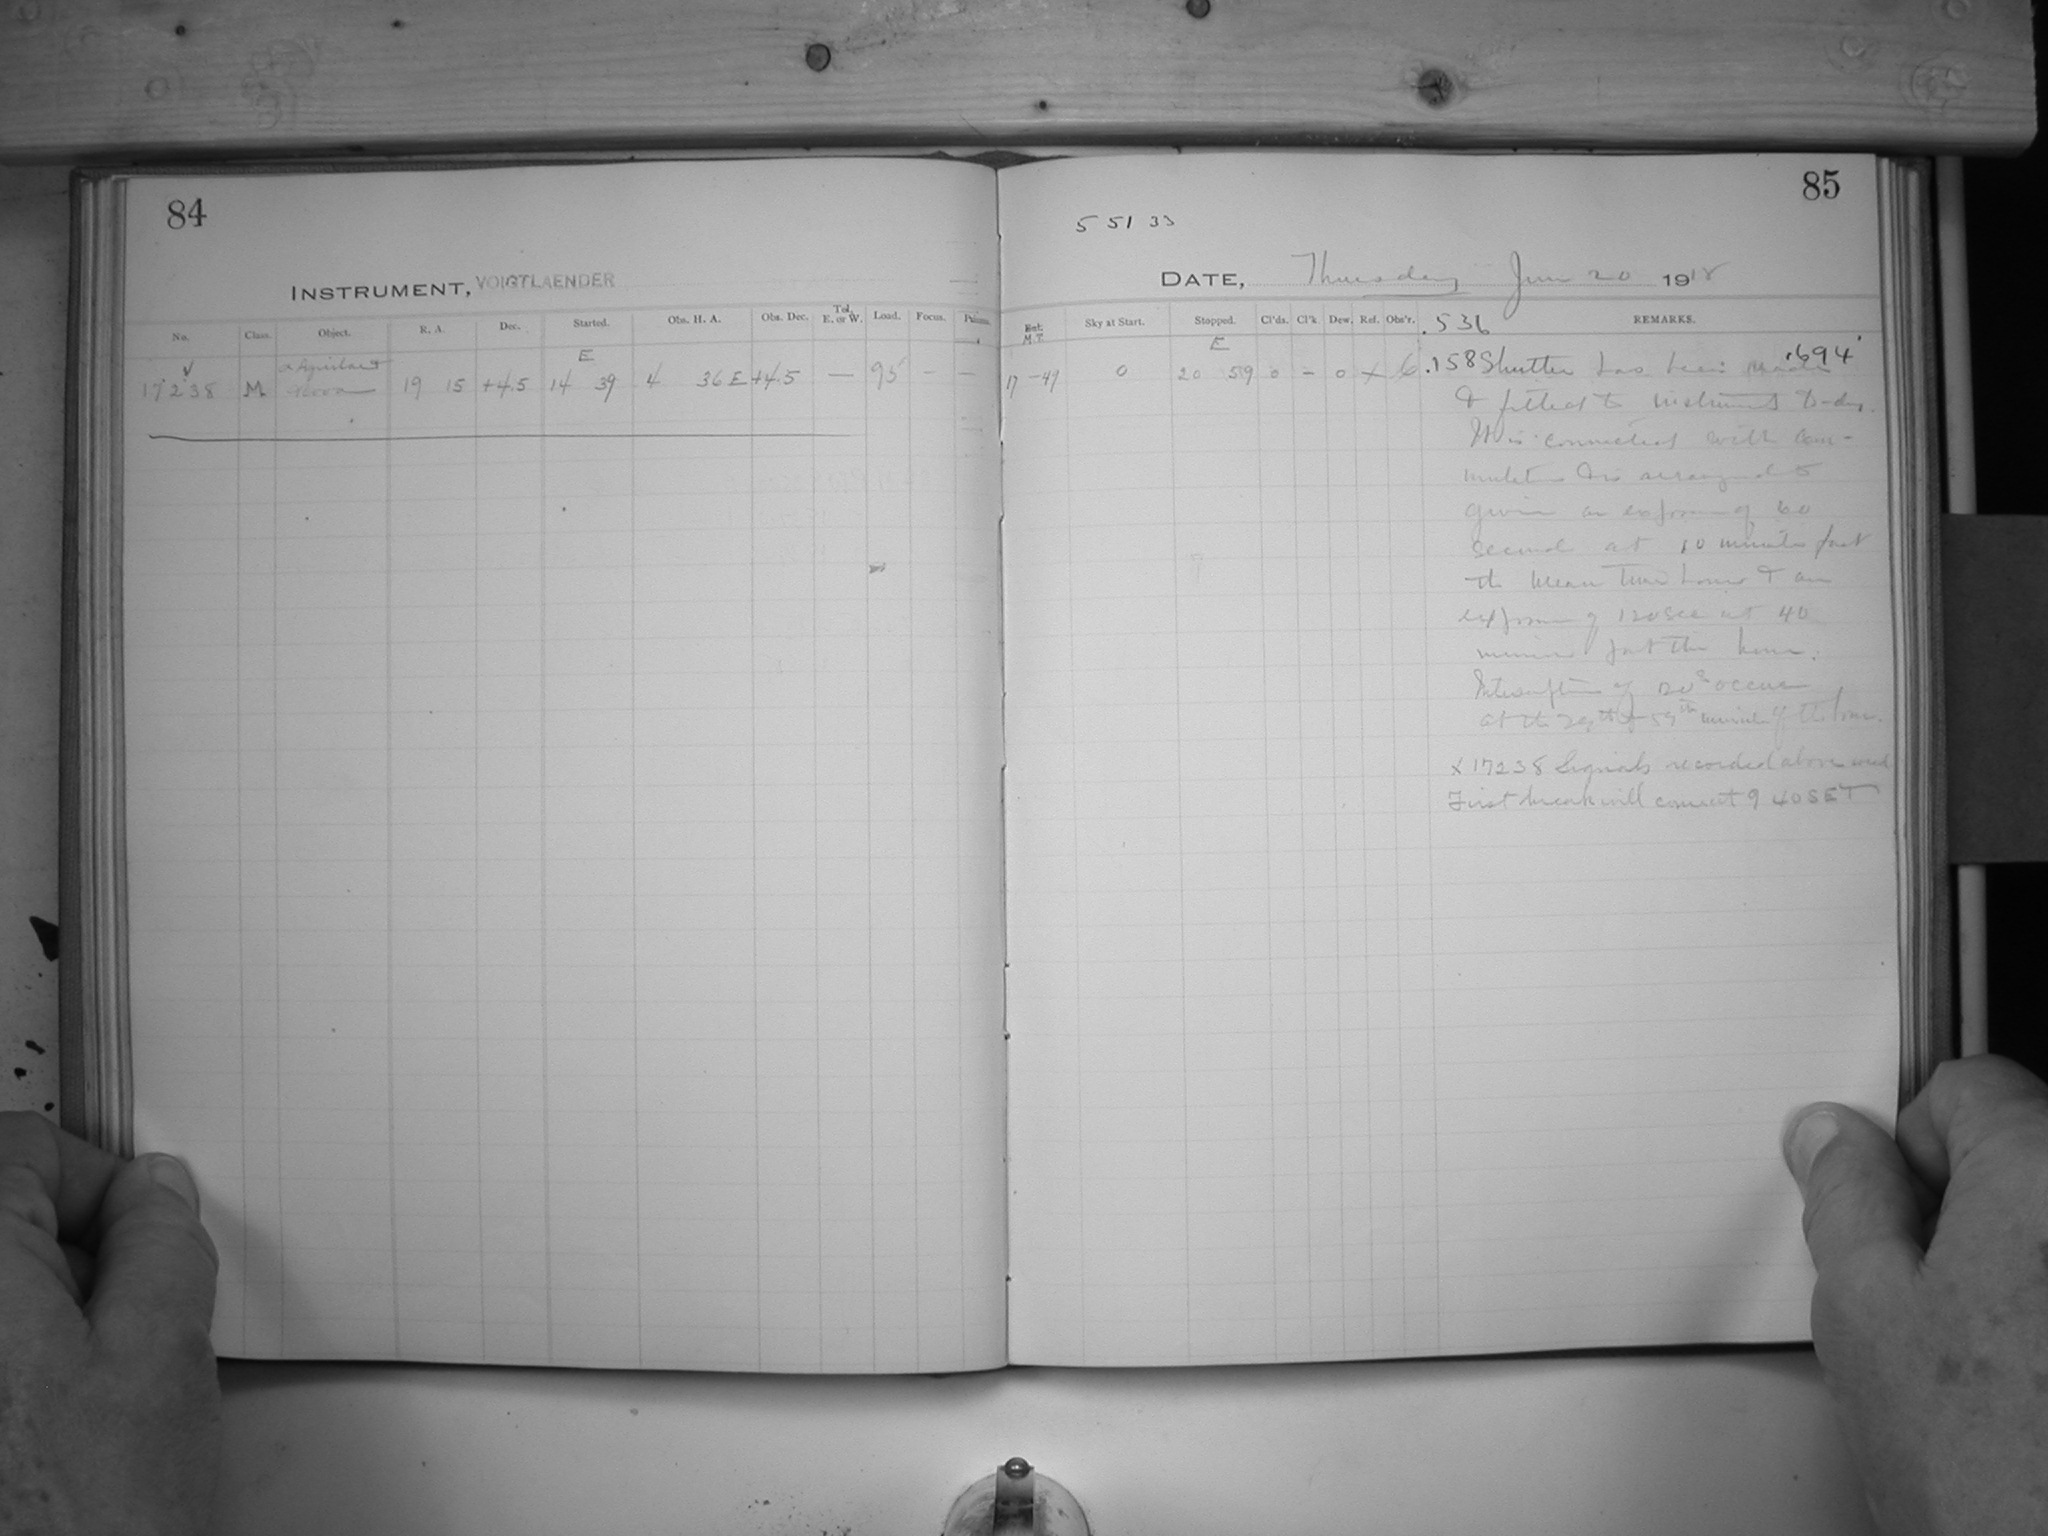 84
85
5 51 33
INSTRUMENT, VOIGTLAENDER
DATE, Thursday June 20 1918
No. Class. Object. R. A. Dec. Started. Obs. H. A. Obs. Dec. Tel. E. or W. Load. Focus.
M.T. Sky at Start. Stopped. Cl'ds. Cl'k. Dew. Ref. Obs'r. .536 REMARKS.
E
E
.694
α Aquilae
17238 M Nova 19 15 +4.5 14 39 4 36 E +4.5 — 95 - —
17 -49 0 20 59 0 - 0 x 6 .158 Shutter has been made
& fitted to instrument to-day.
It is connected with com-
mutator & is arranged to
give an exposure of 60
seconds at 10 minutes past
the mean time hour & an
exposure of 120 sec at 40
minutes past the hour.
Interruptions of 120s occur
at the 29th & 59th minute of the hour.
x 17238 Signals recorded above
First break will 9 40 S E T